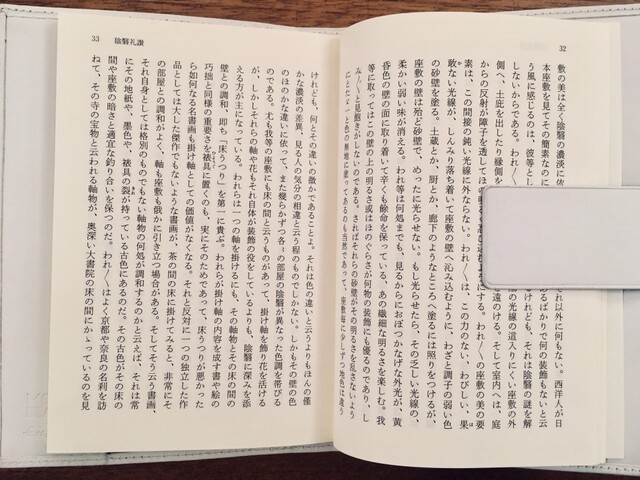 32
敷の美は全く陰翳の濃淡に依
れ以外に何もない。西洋人が日
本座敷を見てその簡素なのに
るばかりで何の装飾もないと云
う風に感じるのは、彼等とし
けれども、それは陰翳の謎を解
しないからである。われ〳〵は
の光線の這入りにくい座敷の外
側へ、土庇を出したり縁側を
遠のける。そして室内へは、庭
からの反射が障子を透してほの明るく忍び込むようにする。われ〳〵の座敷の美の要
素は、この間接の鈍い光線に外ならない。われ〳〵は、この力のない、わびしい、果
敢ない光線が、しんみり落ち着いて座敷の壁へ沁み込むように、わざと調子の弱い色
の砂壁を塗る。土蔵とか、厨とか、廊下のようなところへ塗るには照りをつけるが、
座敷の壁は殆ど砂壁で、めったに光らせない。もし光らせたら、その乏しい光線の、
柔かい弱い味が消える。われ等は何処までも、見るからにおぼつかなげな外光が、黄
昏色の壁の面に取り着いて辛くも餘命を保っている、あの繊細な明るさを楽しむ。我
等に取ってはこの壁の上の明るさ或はほのぐらさが何物の装飾にも優るのであり、し
み〴〵と見飽きがしないのである。さればそれらの砂壁がその明るさを乱さないよう
にとたゞ一と色の無地に塗ってあるのも当然であって、座敷毎に少しずつ地色は違う
33 陰翳礼讃
けれども、何とその違いの微かであることよ。それは色の違いと云うよりもほんの僅
かな濃淡の差異、見る人の気分の相違と云う程のものでしかない。しかもその壁の色
のほのかな違いに依って、また幾らかずつ各〻の部屋の陰翳が異なった色調を帯びる
のである。尤も我等の座敷にも床の間と云うものがあって、掛け軸を飾り花を活ける
が、しかしそれらの軸や花もそれ自体が装飾の役をしているよりも、陰翳に深みを添
える方が主になっている。われらは一つの軸を掛けるにも、その軸物とその床の間の
壁との調和、即ち「床うつり」を第一に貴ぶ。われらが掛け軸の内容を成す書や絵の
巧拙と同様の重要さを裱具に置くのも、実にそのためであって、床うつりが悪かった
ら如何なる名書画も掛け軸としての価値がなくなる。それと反対に一つの独立した作
品としては大した傑作でもないような書画が、茶の間の床に掛けてみると、非常にそ
の部屋との調和がよく、軸も座敷も俄かに引き立つ場合がある。そしてそう云う書画、
それ自身としては格別のものでもない軸物の何処が調和するのかと云えば、それは常
にその地紙や、墨色や、裱具の裂が持っている古色にあるのだ。その古色がその床の
間や座敷の暗さと適宜な釣り合いを保つのだ。われ〳〵はよく京都や奈良の名刹を訪
ねて、その寺の宝物と云われる軸物が、奥深い大書院の床の間にかゝっているのを見